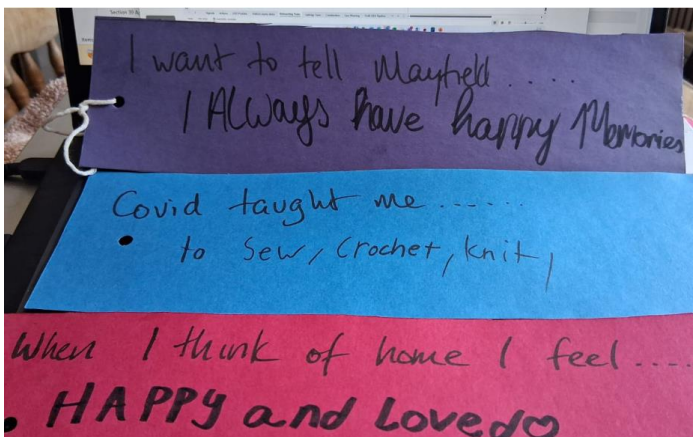 Section 39
I want to tell Mayfield.....
I ALWAYS have happy Memories
Covid taught me.......
to Sew, Crochet, knit,
When I think of home I feel....
HAPPY and Loved♡